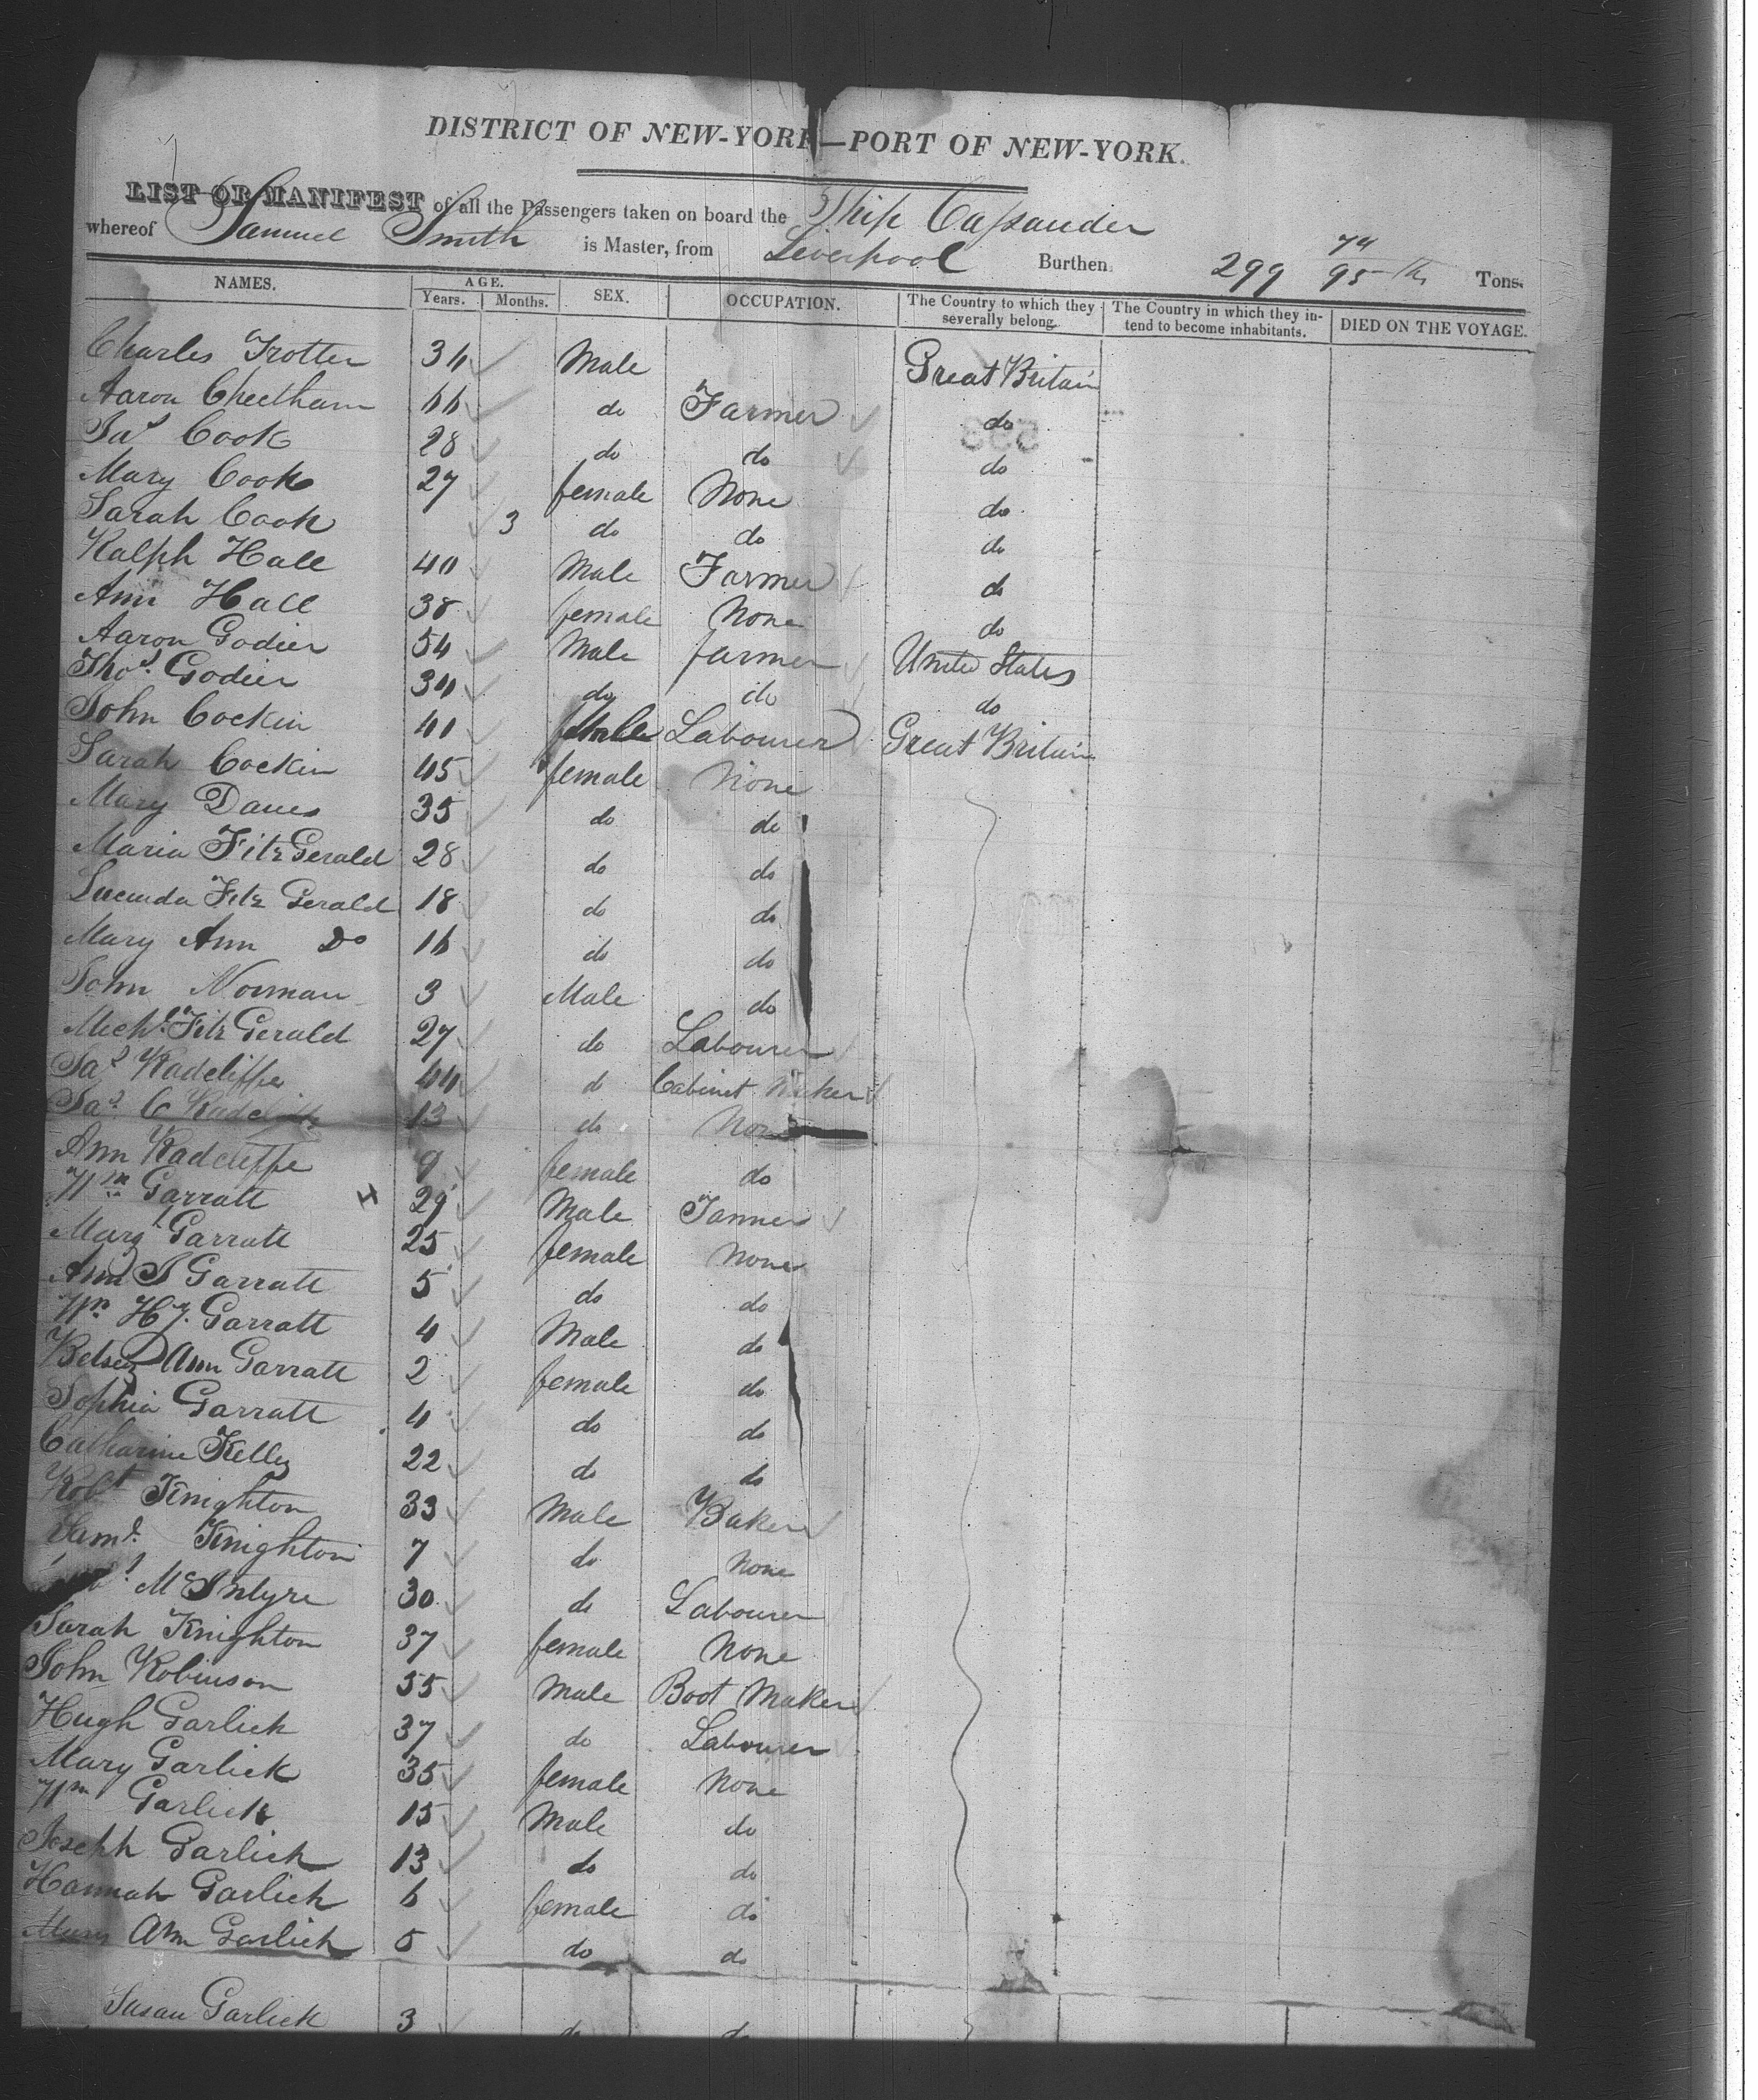 DISTRICT OF NEW-YORK—PORT OF NEW-YORK.
LIST OR MANIFEST of all the Passengers taken on board the Ship Cassander
whereof Samuel Smith is Master, from Liverpool Burthen 299 74/95 ths Tons.
NAMES. AGE. Years. Months. SEX. OCCUPATION. The Country to which they severally belong. The Country in which they intend to become inhabitants. DIED ON THE VOYAGE.
Charles Trotter 34 Male Great Britain
Aaron Cheetham 66 do Farmer do
Jas Cook 28 do do do
Mary Cook 27 female None do
Sarah Cook 3 do do do
Ralph Hall 40 Male Farmer do
Ann Hall 38 female None do
Aaron Godier 54 Male farmer United States
Thos. Godier 34 do do do
John Cockin 41 Male Labourer Great Britain
Sarah Cockin 45 female None
Mary Davies 35 do do
Maria FitzGerald 28 do do
Lucinda Fitz Gerald 18 do do
Mary Ann Do 16 do do
John Norman 3 Male do
Michl. Fitz Gerald 27 do Labourer
Jas Radcliffe 44 d Cabinet Maker
Jas. C Radcliffe 13 do None
Ann Radcliffe 9 female do
Wm Garratt 29 Male Farmer
Margt Garratt 25 female None
Ann S Garratt 5 do do
Wm H J. Garratt 4 Male do
Betsey Ann Garratt 2 female do
Sophia Garratt 4 do do
Catharine Kelly 22 do do
Robt Knighton 33 Male Baker
Saml. Knighton 7 do None
McIntyre 30 do Labourer
Sarah Knighton 37 female None
John Robinson 55 Male Boot Maker
Hugh Garlick 37 do Labourer
Mary Garlick 35 female None
Wm Garlick 15 Male do
Joseph Garlick 13 do do
Hannah Garlick 6 female do
Mary Ann Garlick 5 do do
Susan Garlick 3 do do